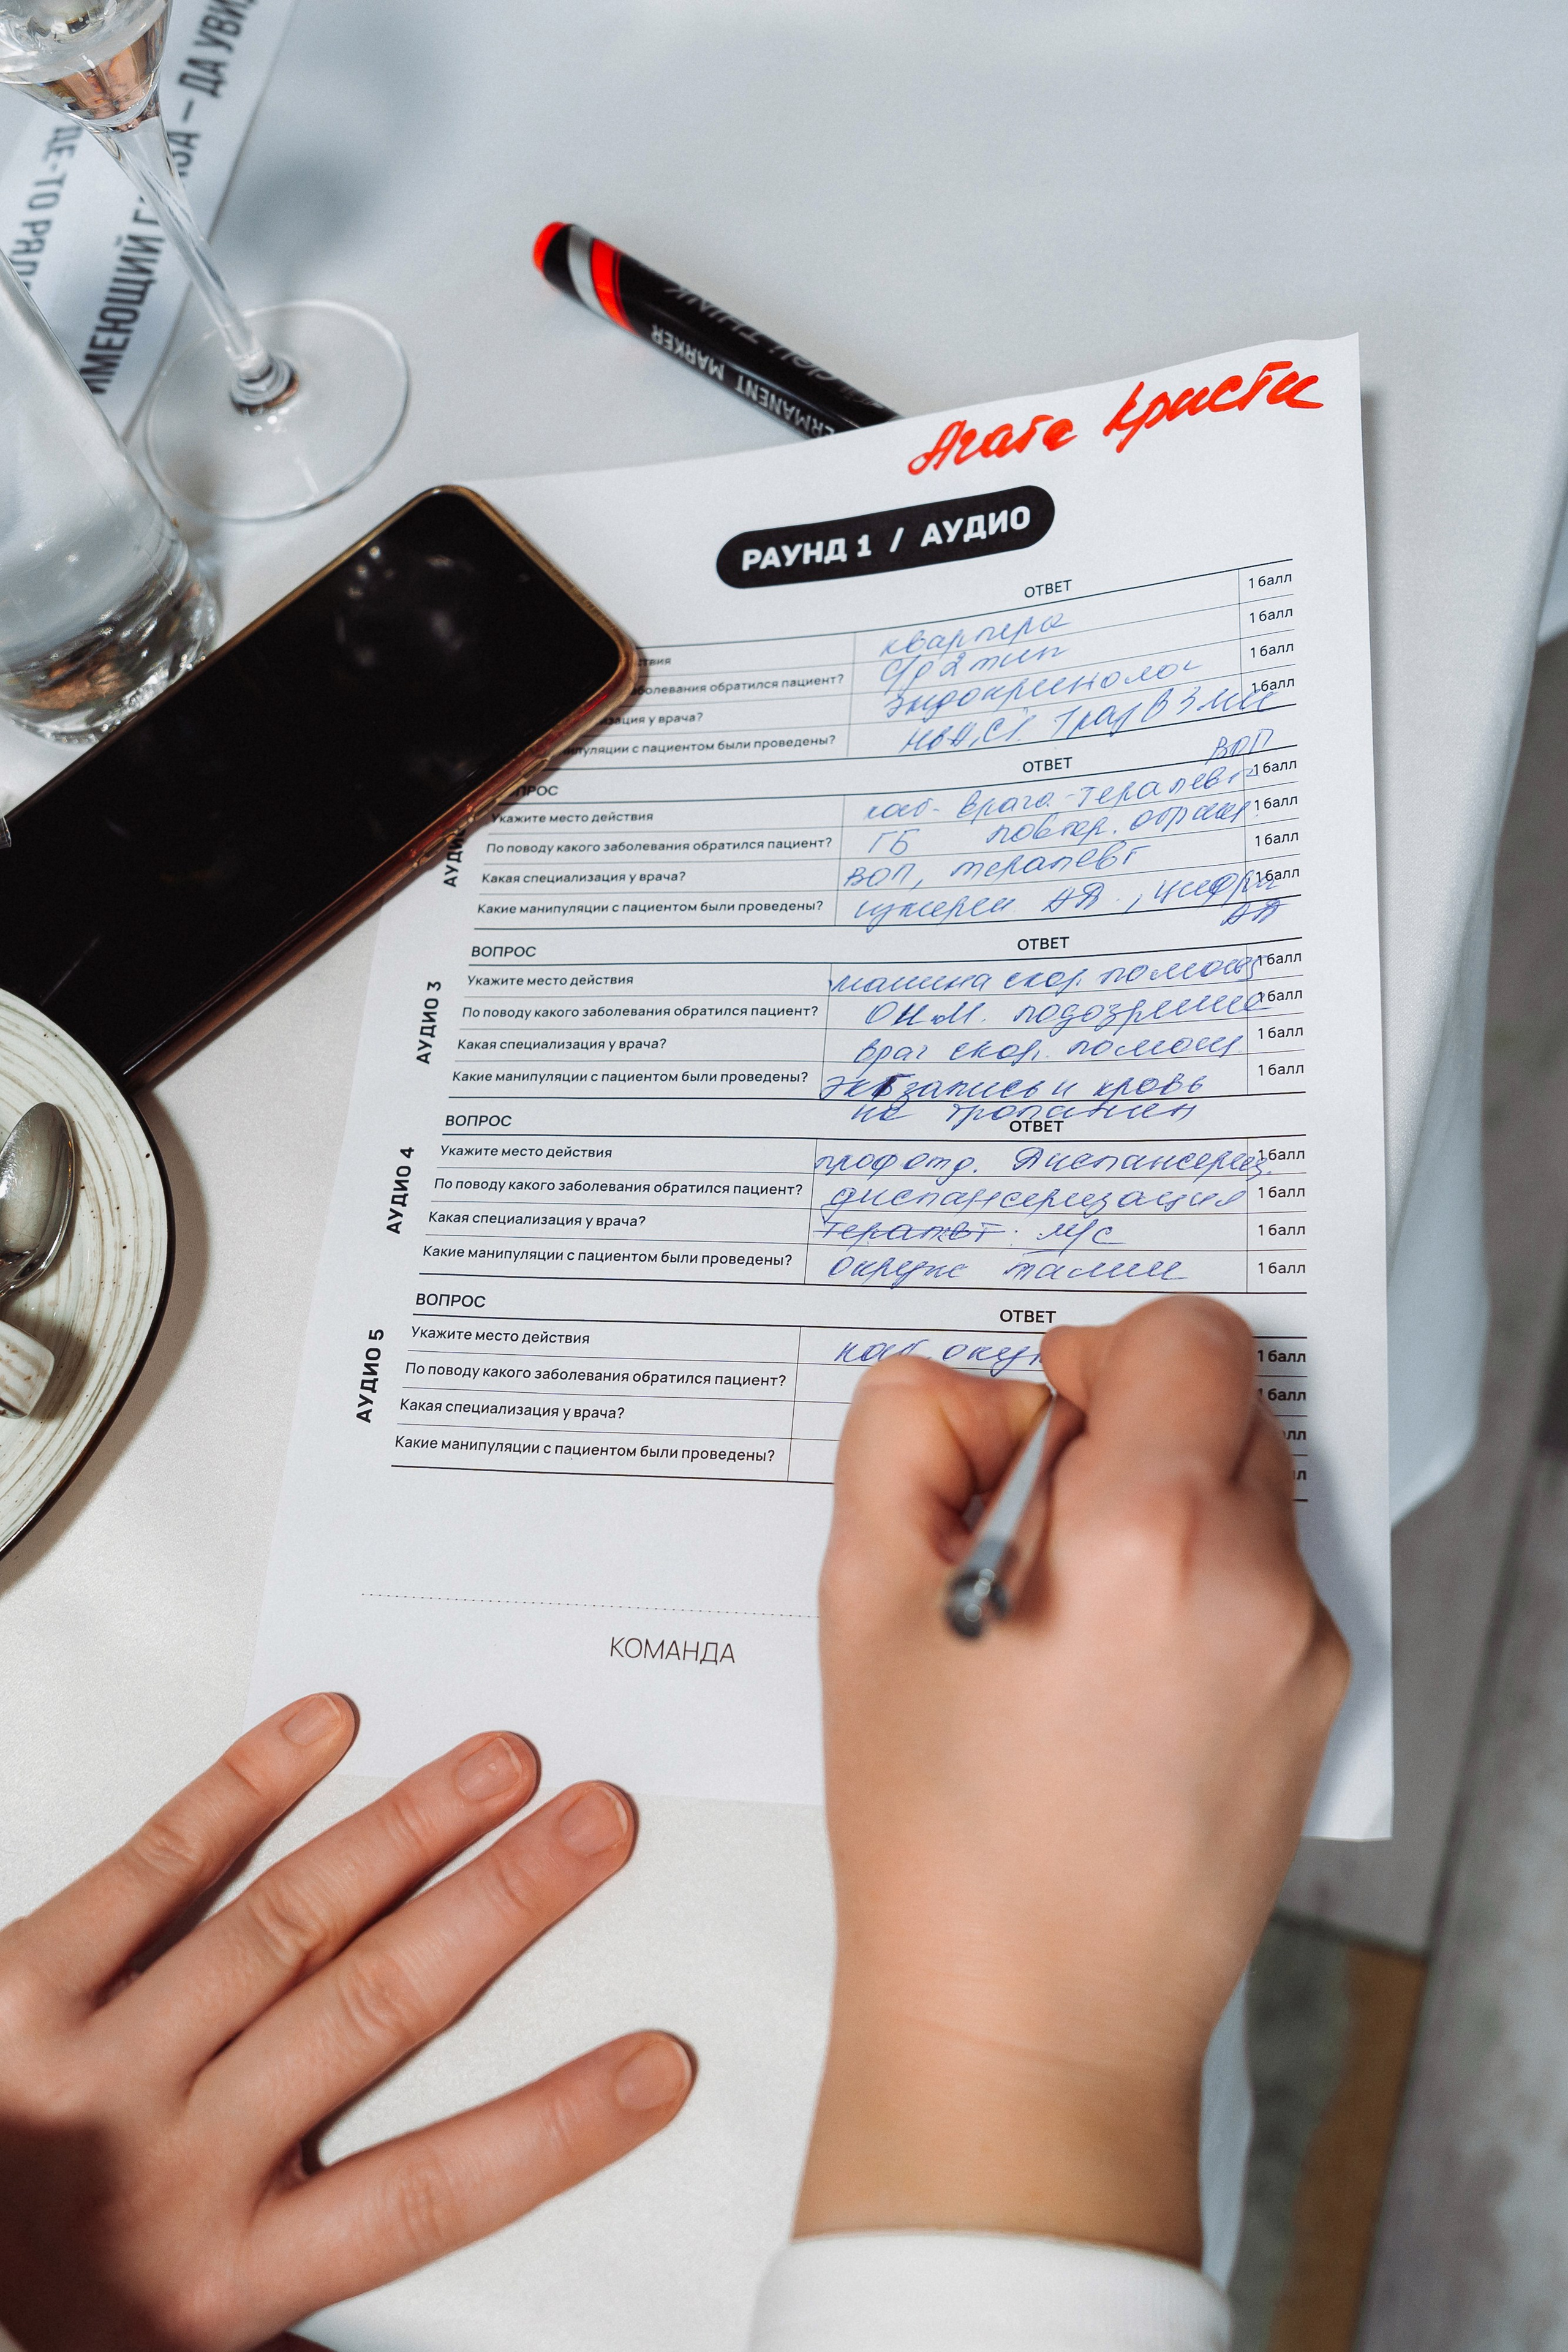 ДА УВИ
ИМЕЮЩИЙ
PERMANENT MARKER
THINK
Агата Кристи
РАУНД 1 / АУДИО
ОТВЕТ 1 балл
квартира 1 балл
болевания обратился пациент? 2 тип 1 балл
зация у врача? эндокринолог 1 балл
ипуляции с пациентом были проведены?
ВОП
ПРОС ОТВЕТ
Укажите место действия каб. врача-терапевта 1 балл
По поводу какого заболевания обратился пациент? ГБ повтор. 1 балл
АУДИ
Какая специализация у врача? ВОП, терапевт 1 балл
Какие манипуляции с пациентом были проведены? измерен. АД, цифры 1 балл
АД
ВОПРОС ОТВЕТ
Укажите место действия машина скор. помощ 1 балл
По поводу какого заболевания обратился пациент? подозрение 1 балл
АУДИО 3
Какая специализация у врача? врач скор. помощ. 1 балл
Какие манипуляции с пациентом были проведены? запись и кровь 1 балл
на тропанин
ВОПРОС ОТВЕТ
Укажите место действия проф отд. Диспансериз. 1 балл
По поводу какого заболевания обратился пациент? диспансеризация 1 балл
АУДИО 4
Какая специализация у врача? терапевт. м/с 1 балл
Какие манипуляции с пациентом были проведены? окруж талии 1 балл
ВОПРОС ОТВЕТ
Укажите место действия каб. оку 1 балл
По поводу какого заболевания обратился пациент? 1 балл
АУДИО 5
Какая специализация у врача? лл
Какие манипуляции с пациентом были проведены? л
КОМАНДА